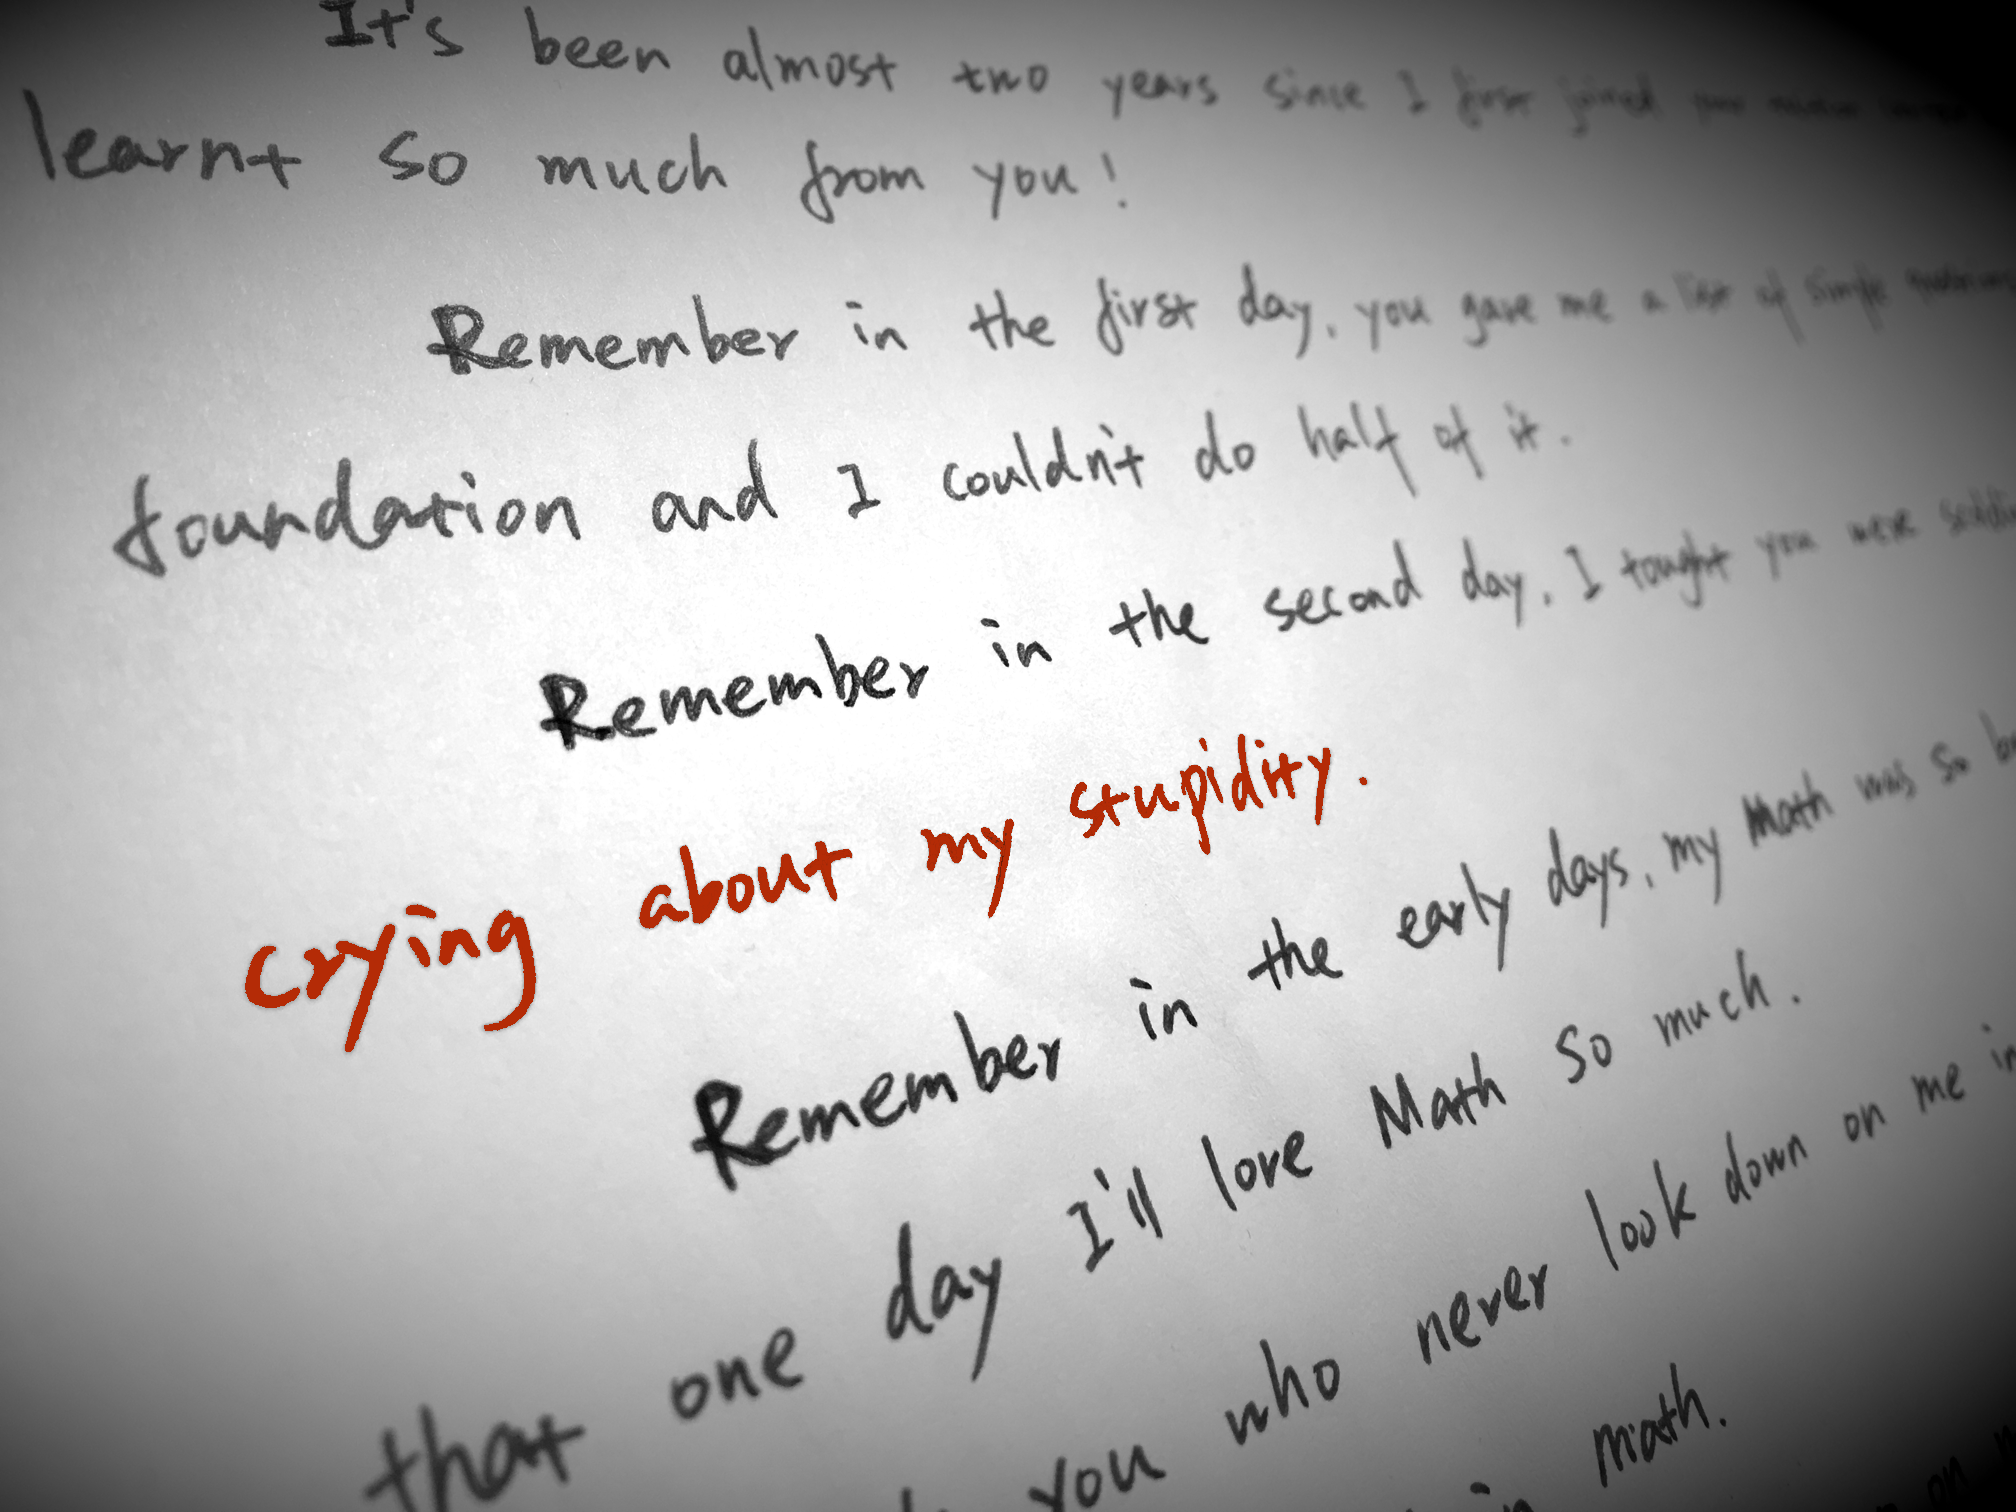 It's been almost two years since I first joined
learnt so much from you!
Remember in the first day, you gave me a list of simple
foundation and I couldn't do half of it.
Remember in the second day, I tought you were
crying about my stupidity.
Remember in the early days, my Math was so
that one day I'll love Math so much.
you who never look down on me in
in math.
on